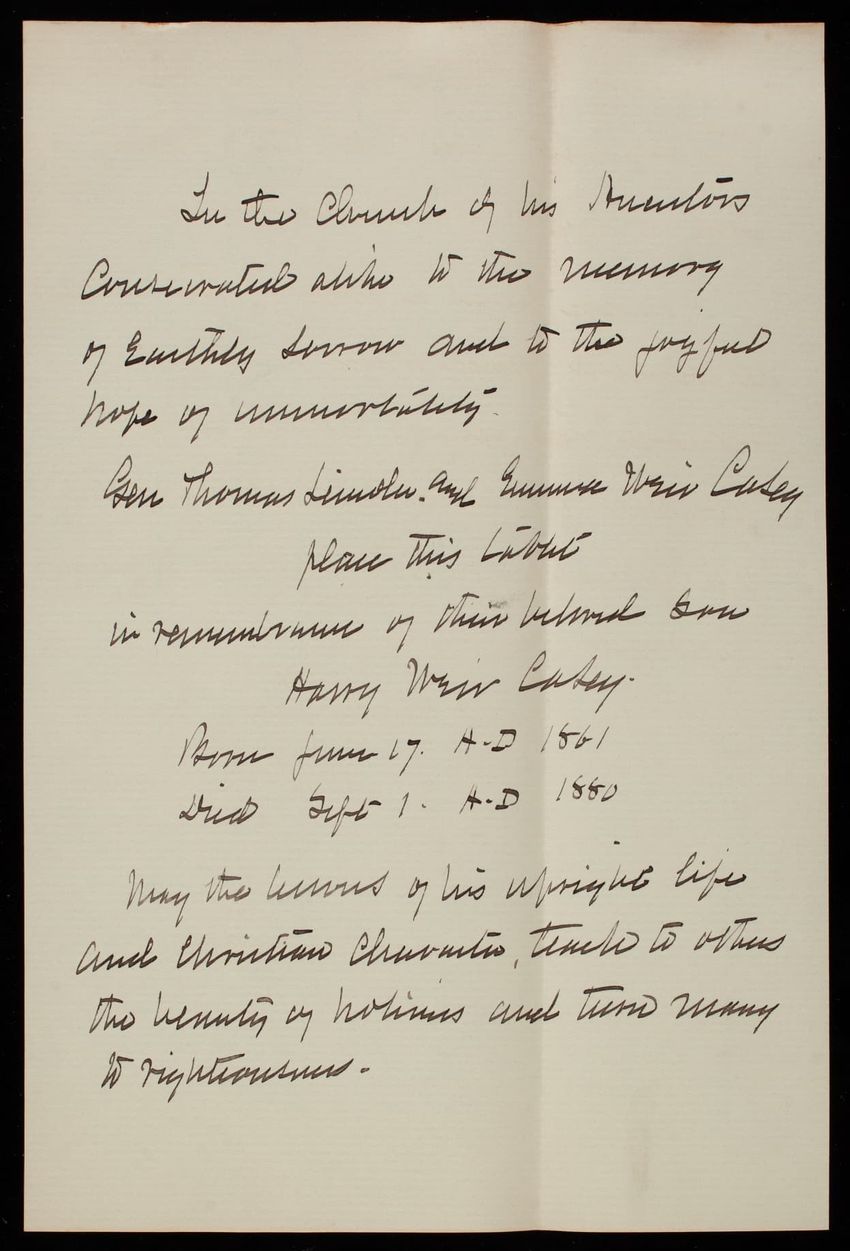 In the Church of his Ancestors
Consecrated alike to the memory
of Earthly sorrow and to the joyful
hope of immortality.
Gen Thomas Lincoln and Emma Weir Casey
place this tablet
in remembrance of their beloved Son
Harry Weir Casey.
Born June 17. A-D 1861
Died Sept 1. A-D 1880
May the lessons of his upright life
and Christian Character, teach to others
the beauty of holiness and turn many
to righteousness.